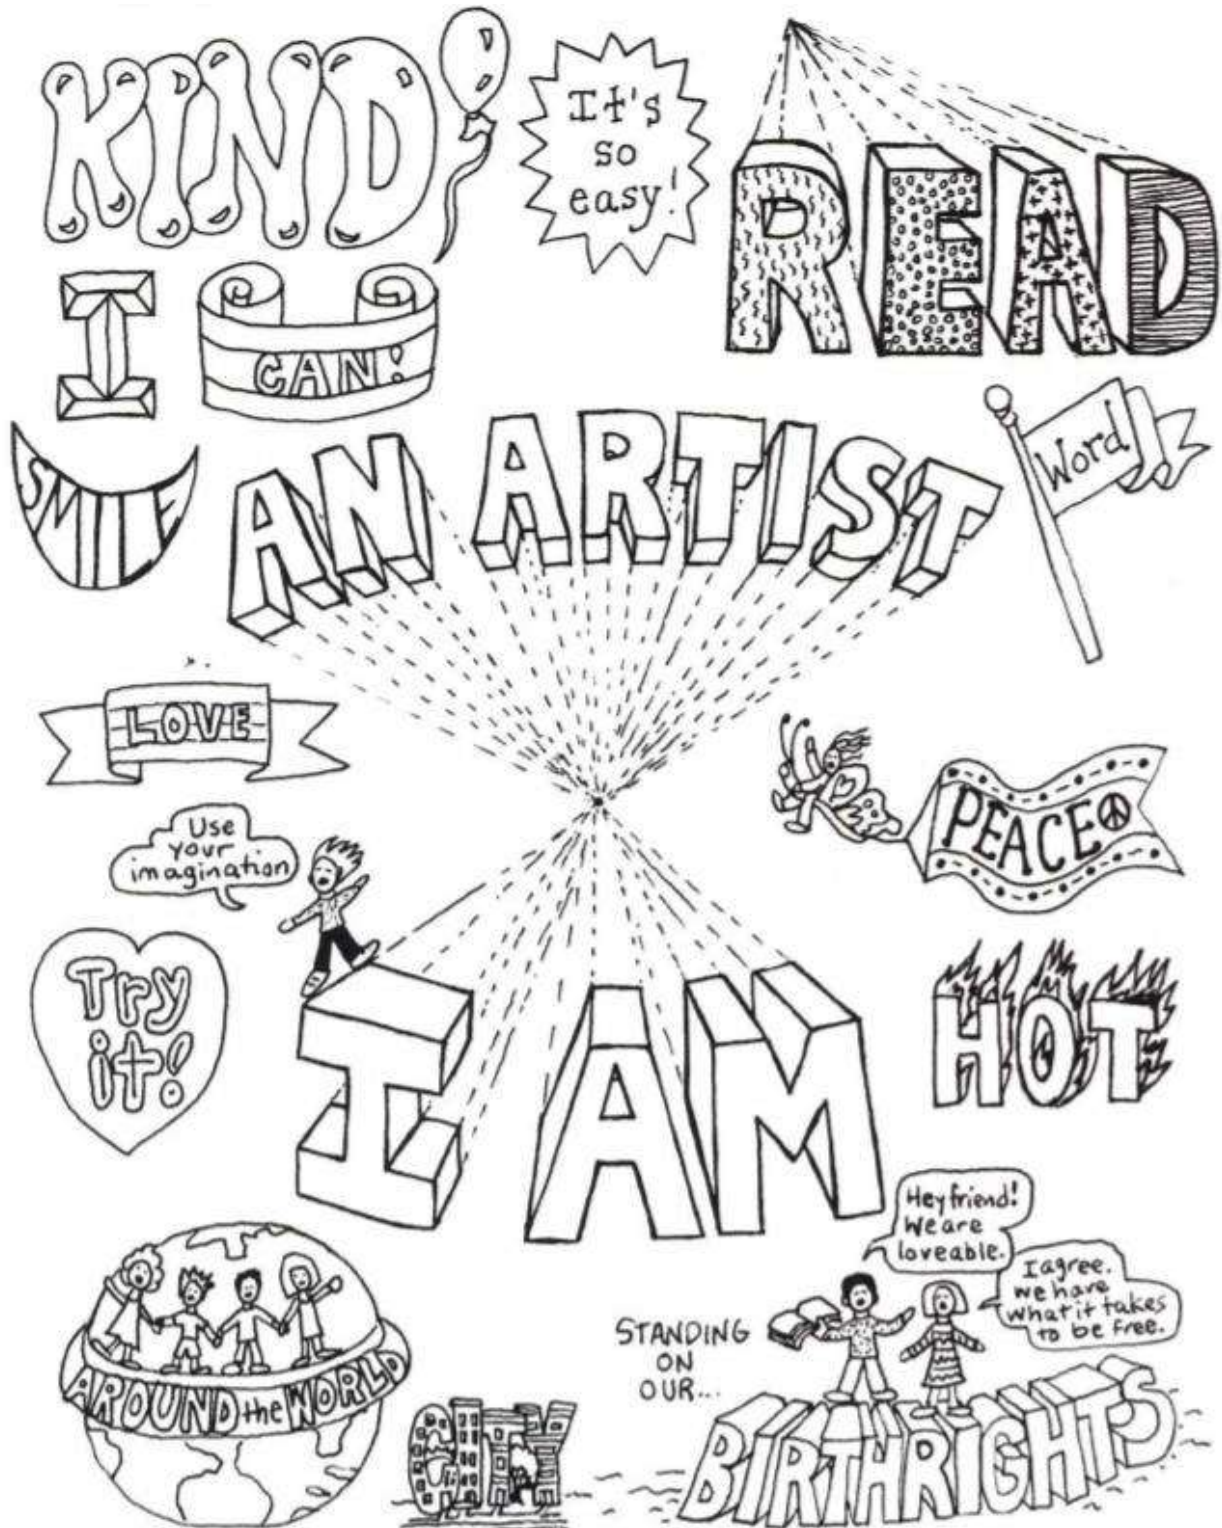 KIND
It's
so
easy!
READ
I
CAN!
SMILE
AN ARTIST
Word
LOVE
PEACE
Use
your
imagination
Try
it!
HOT
I AM
Hey friend!
We are
loveable.
I agree.
we have
what it takes
to be free.
STANDING
ON
OUR...
BIRTHRIGHTS
AROUND the WORLD
CITY